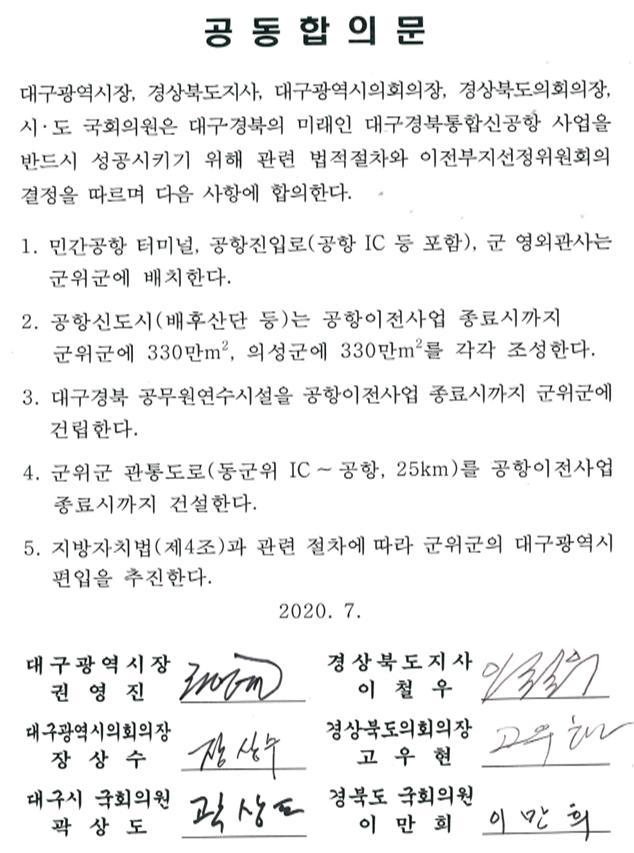 공동합의문
대구광역시장, 경상북도지사, 대구광역시의회의장, 경상북도의회의장,
시·도 국회의원은 대구경북의 미래인 대구경북통합신공항 사업을
반드시 성공시키기 위해 관련 법적절차와 이전부지선정위원회의
결정을 따르며 다음 사항에 합의한다.
1. 민간공항 터미널, 공항진입로(공항 IC 등 포함), 군 영외관사는
군위군에 배치한다.
2. 공항신도시(배후산단 등)는 공항이전사업 종료시까지
군위군에 330만m², 의성군에 330만m²를 각각 조성한다.
3. 대구경북 공무원연수시설을 공항이전사업 종료시까지 군위군에
건립한다.
4. 군위군 관통도로(동군위 IC ~ 공항, 25km)를 공항이전사업
종료시까지 건설한다.
5. 지방자치법(제4조)과 관련 절차에 따라 군위군의 대구광역시
편입을 추진한다.
2020. 7.
대구광역시장 경상북도지사
권영진 이철우
대구광역시의회의장 경상북도의회의장
장상수 장상수 고우현
대구시 국회의원 경북도 국회의원
곽상도 곽상도 이만희 이만희